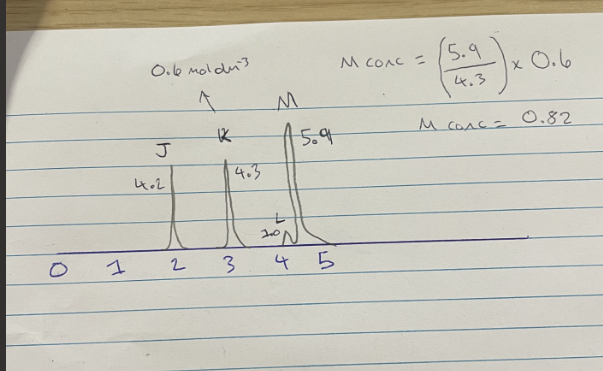 0.6 moldm⁻³
M conc = (5.9/4.3) × 0.6
M conc = 0.82
J K M
4.2 4.3 5.9
L
0 1 2 3 4 5